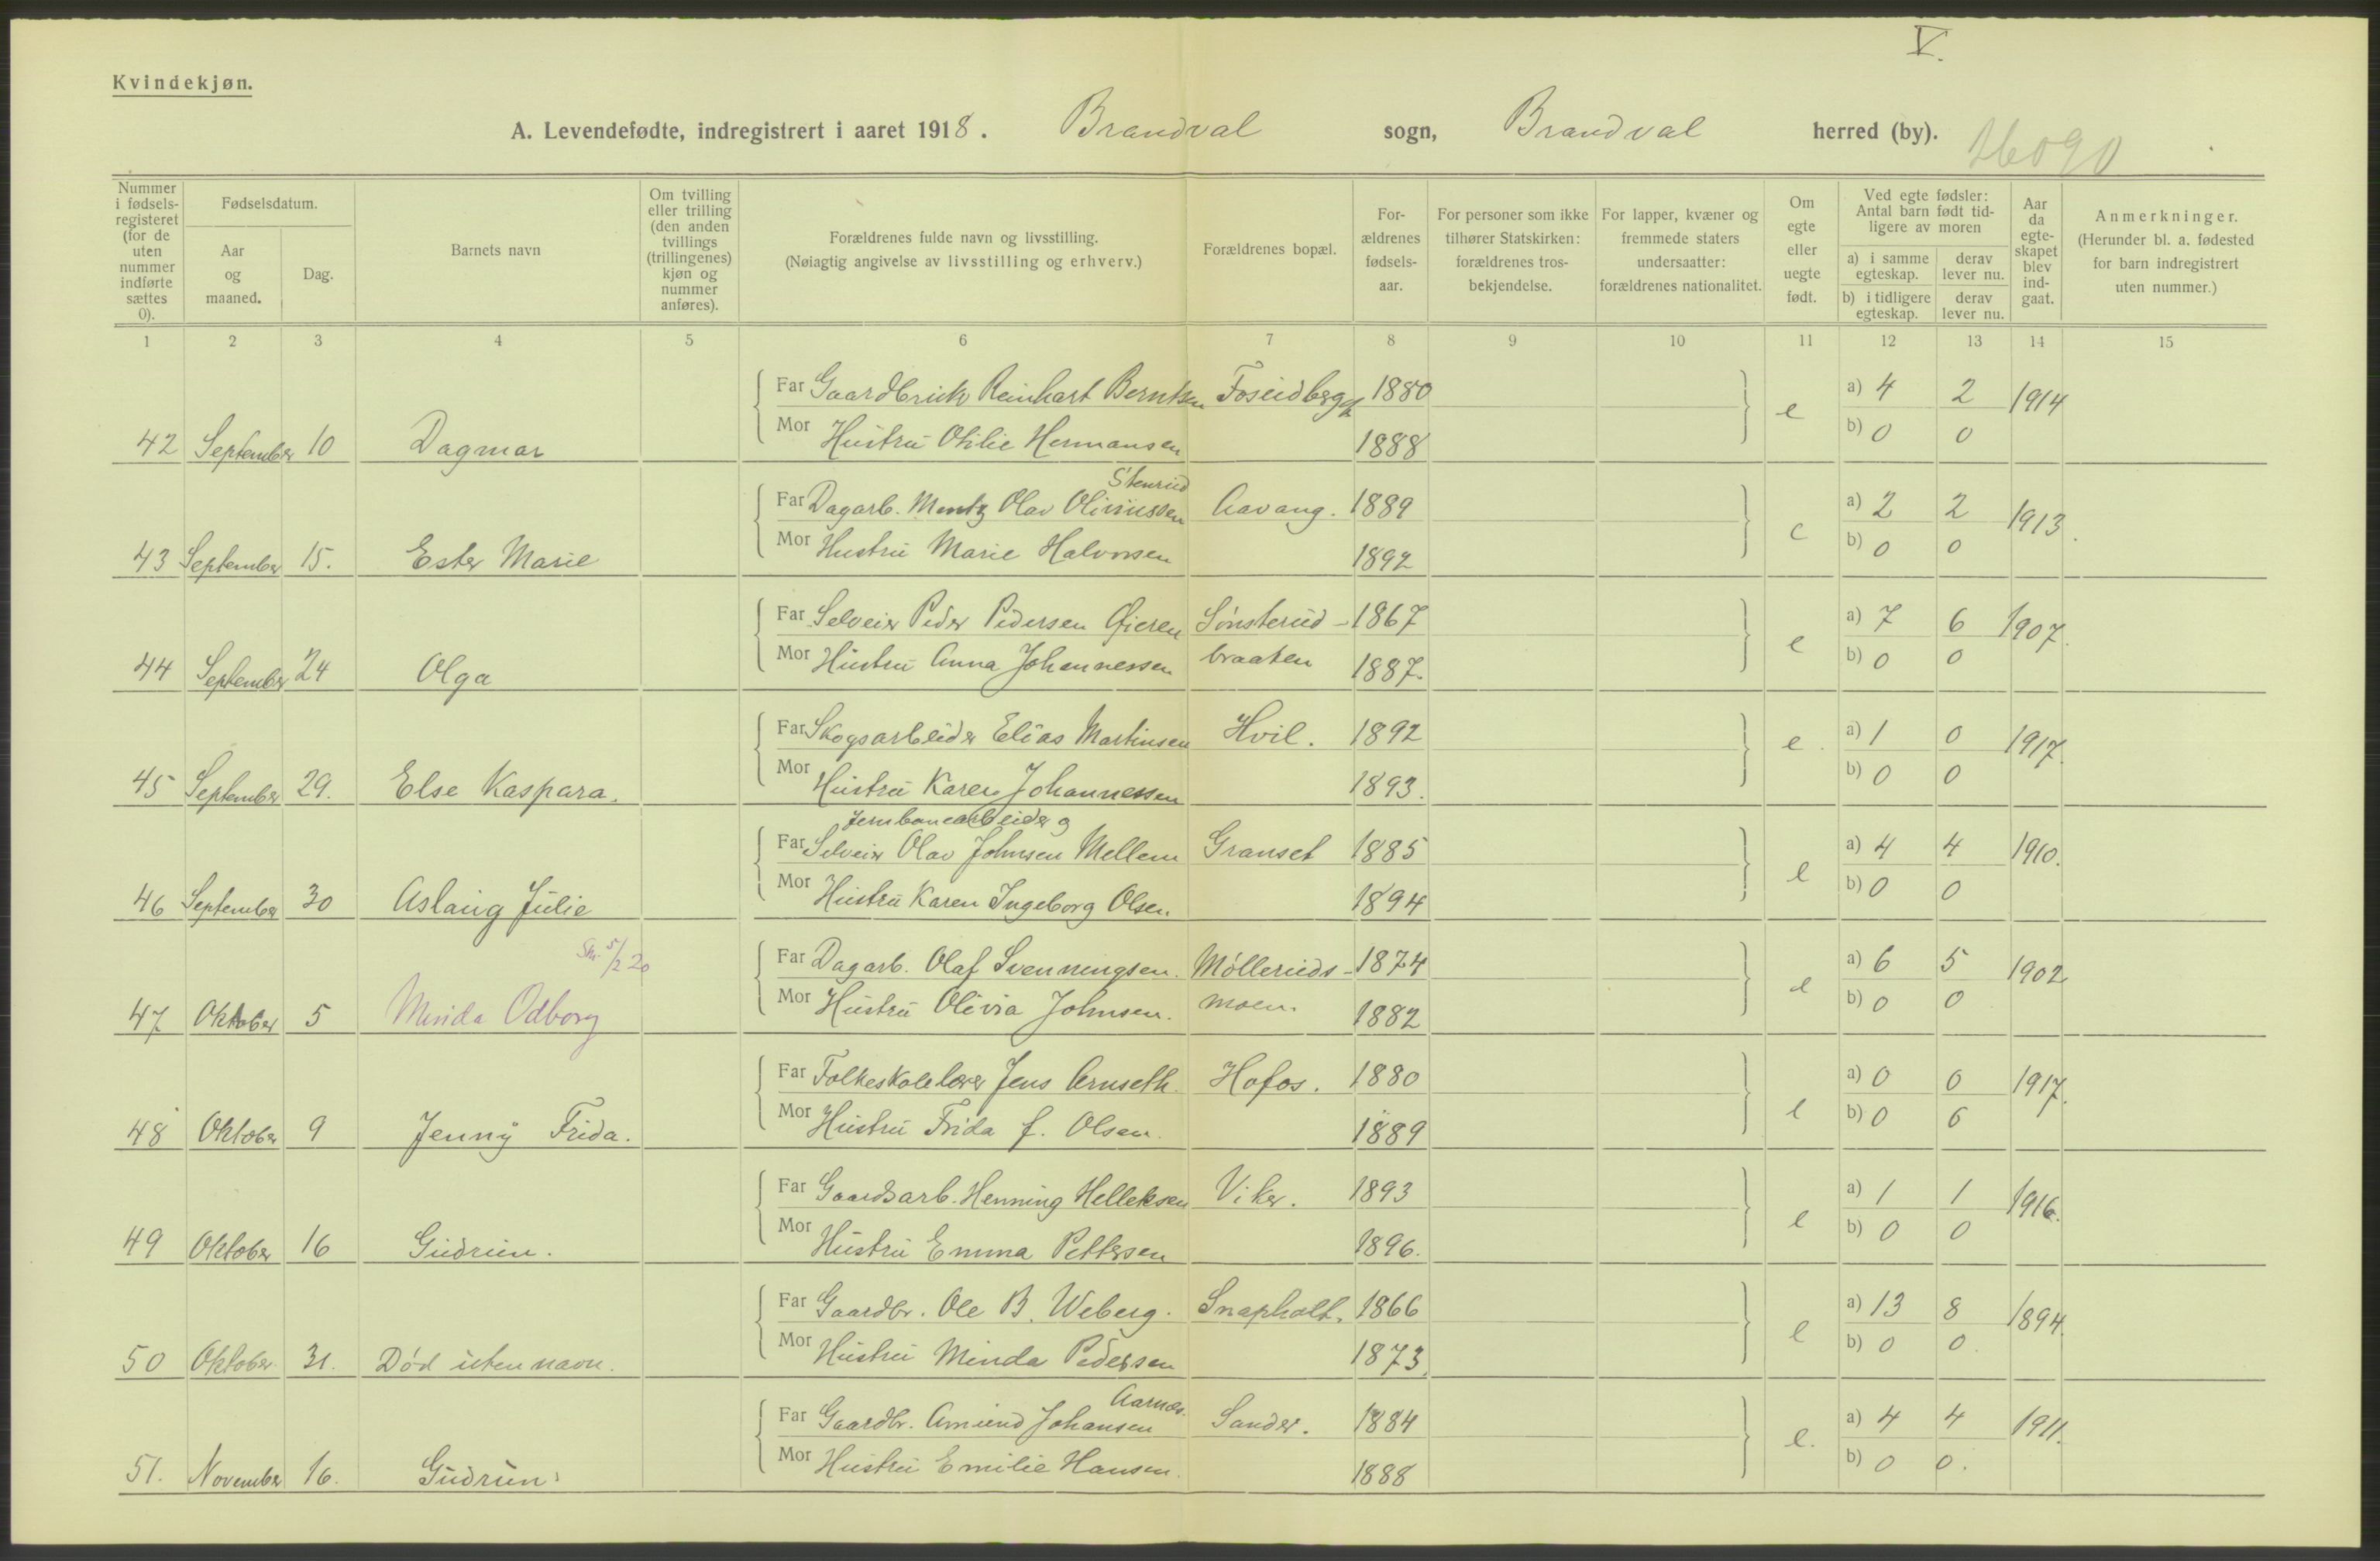 V.
Kvindekjøn.
A. Levendefødte, indregistrert i aaret 1918. Brandval sogn, Brandval herred (by). 16090
Nummer i fødselsregisteret (for de uten nummer indførte sættes 0).
Fødselsdatum.
Aar og maaned.
Dag.
Barnets navn
Om tvilling eller trilling (den anden tvillings (trillingenes) kjøn og nummer anføres).
Forældrenes fulde navn og livsstilling.
(Nøiagtig angivelse av livsstilling og erhverv.)
Forældrenes bopæl.
Forældrenes fødselsaar.
For personer som ikke tilhører Statskirken: forældrenes trosbekjendelse.
For lapper, kvæner og fremmede staters undersaatter: forældrenes nationalitet.
Om egte eller uegte født.
Ved egte fødsler: Antal barn født tidligere av moren
a) i samme egteskap. derav lever nu.
b) i tidligere egteskap. derav lever nu.
Aar da egteskapet blev indgaat.
Anmerkninger.
(Herunder bl. a. fødested for barn indregistrert uten nummer.)
1 2 3 4 5 6 7 8 9 10 11 12 13 14 15
Far Gaardbruk Reinhart Berntsen Foseidbergg 1880 a) 4 2 1914
42 September 10 Dagmar Mor Hustru Otilie Hermansen 1888 e b) 0 0
Stenrud
Far Dagarb. Mentz Olav Oliviussen Aavang. 1889 a) 2 2 1913.
43 September 15. Ester Marie Mor Hustru Marie Halvorsen 1892 e b) 0 0
Far Selveier Peder Pedersen Øieren Sønsterud- 1867 a) 7 6 1907.
44 September 24 Olga Mor Hustru Anna Johannessen braaten 1887. e b) 0 0
Far Skogsarbeider Elias Martinsen Hvil. 1892 a) 1 0 1917.
45 September 29. Else Kaspara. Mor Hustru Karen Johannessen 1893. e. b) 0 0
Jernbanearbeider g
Far Selveier Olav Johnsen Mellem Granset 1885 a) 4 4 1910.
46 September 30 Aslaug Julie Mor Hustru Karen Ingeborg Olsen. 1894 e b) 0 0
5/2 20
Far Dagarb. Olaf Svenningsen. Mølleruds- 1874 a) 6 5 1902
47 Oktober 5 Minda Odborg Mor Hustru Olivia Johnsen. moen. 1882 e b) 0 0
Far Folkeskolelærer Jens Arnseth. Hofos. 1880 a) 0 0 1917.
48 Oktober 9 Jenny Frida. Mor Hustru Frida f. Olsen. 1889 e b) 0 0
Far Gaardsarb. Henning Helleksen Viker. 1893 a) 1 1 1916.
49 Oktober 16 Gudrun. Mor Hustru Emma Pettersen 1896. e b) 0 0
Far Gaardbr. Ole B. Weberg. Snapholt. 1866 a) 13 8 1894.
50 Oktober 31. Død uten navn. Mor Hustru Minda Pedersen 1873. e b) 0 0.
Aarnes.
Far Gaardbr. Amund Johansen Sander. 1884 a) 4 4 1911.
51. November 16. Gudrun. Mor Hustru Emilie Hansen. 1888 e. b) 0 0.